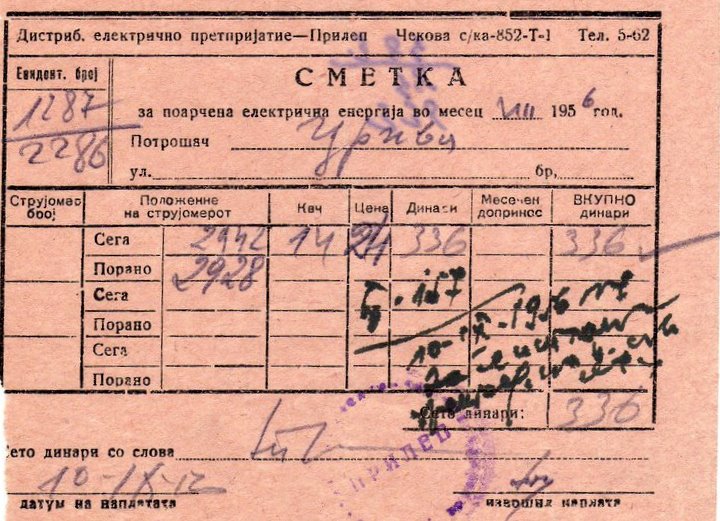 Дистриб. електрично претпријатие—Прилеп Чекова с/ка-852-Т-1 Тел. 5-62
Евидент. број
СМЕТКА
1287
2286
за поарчена електрична енергија во месец VIII 1956 год.
Потрошач
ул. бр,
Струјомер број Положение на струјомерот Квч Цена Динари Месечен допринос ВКУПНО динари
Сега 2942 14 24 336 336
Порано 2928
Сега
Порано
Сега
Порано
10-IX-1956
Сето динари: 336
Сето динари со слова
ПРИЛЕП
10-IX
датум на наплатата извошил наплата